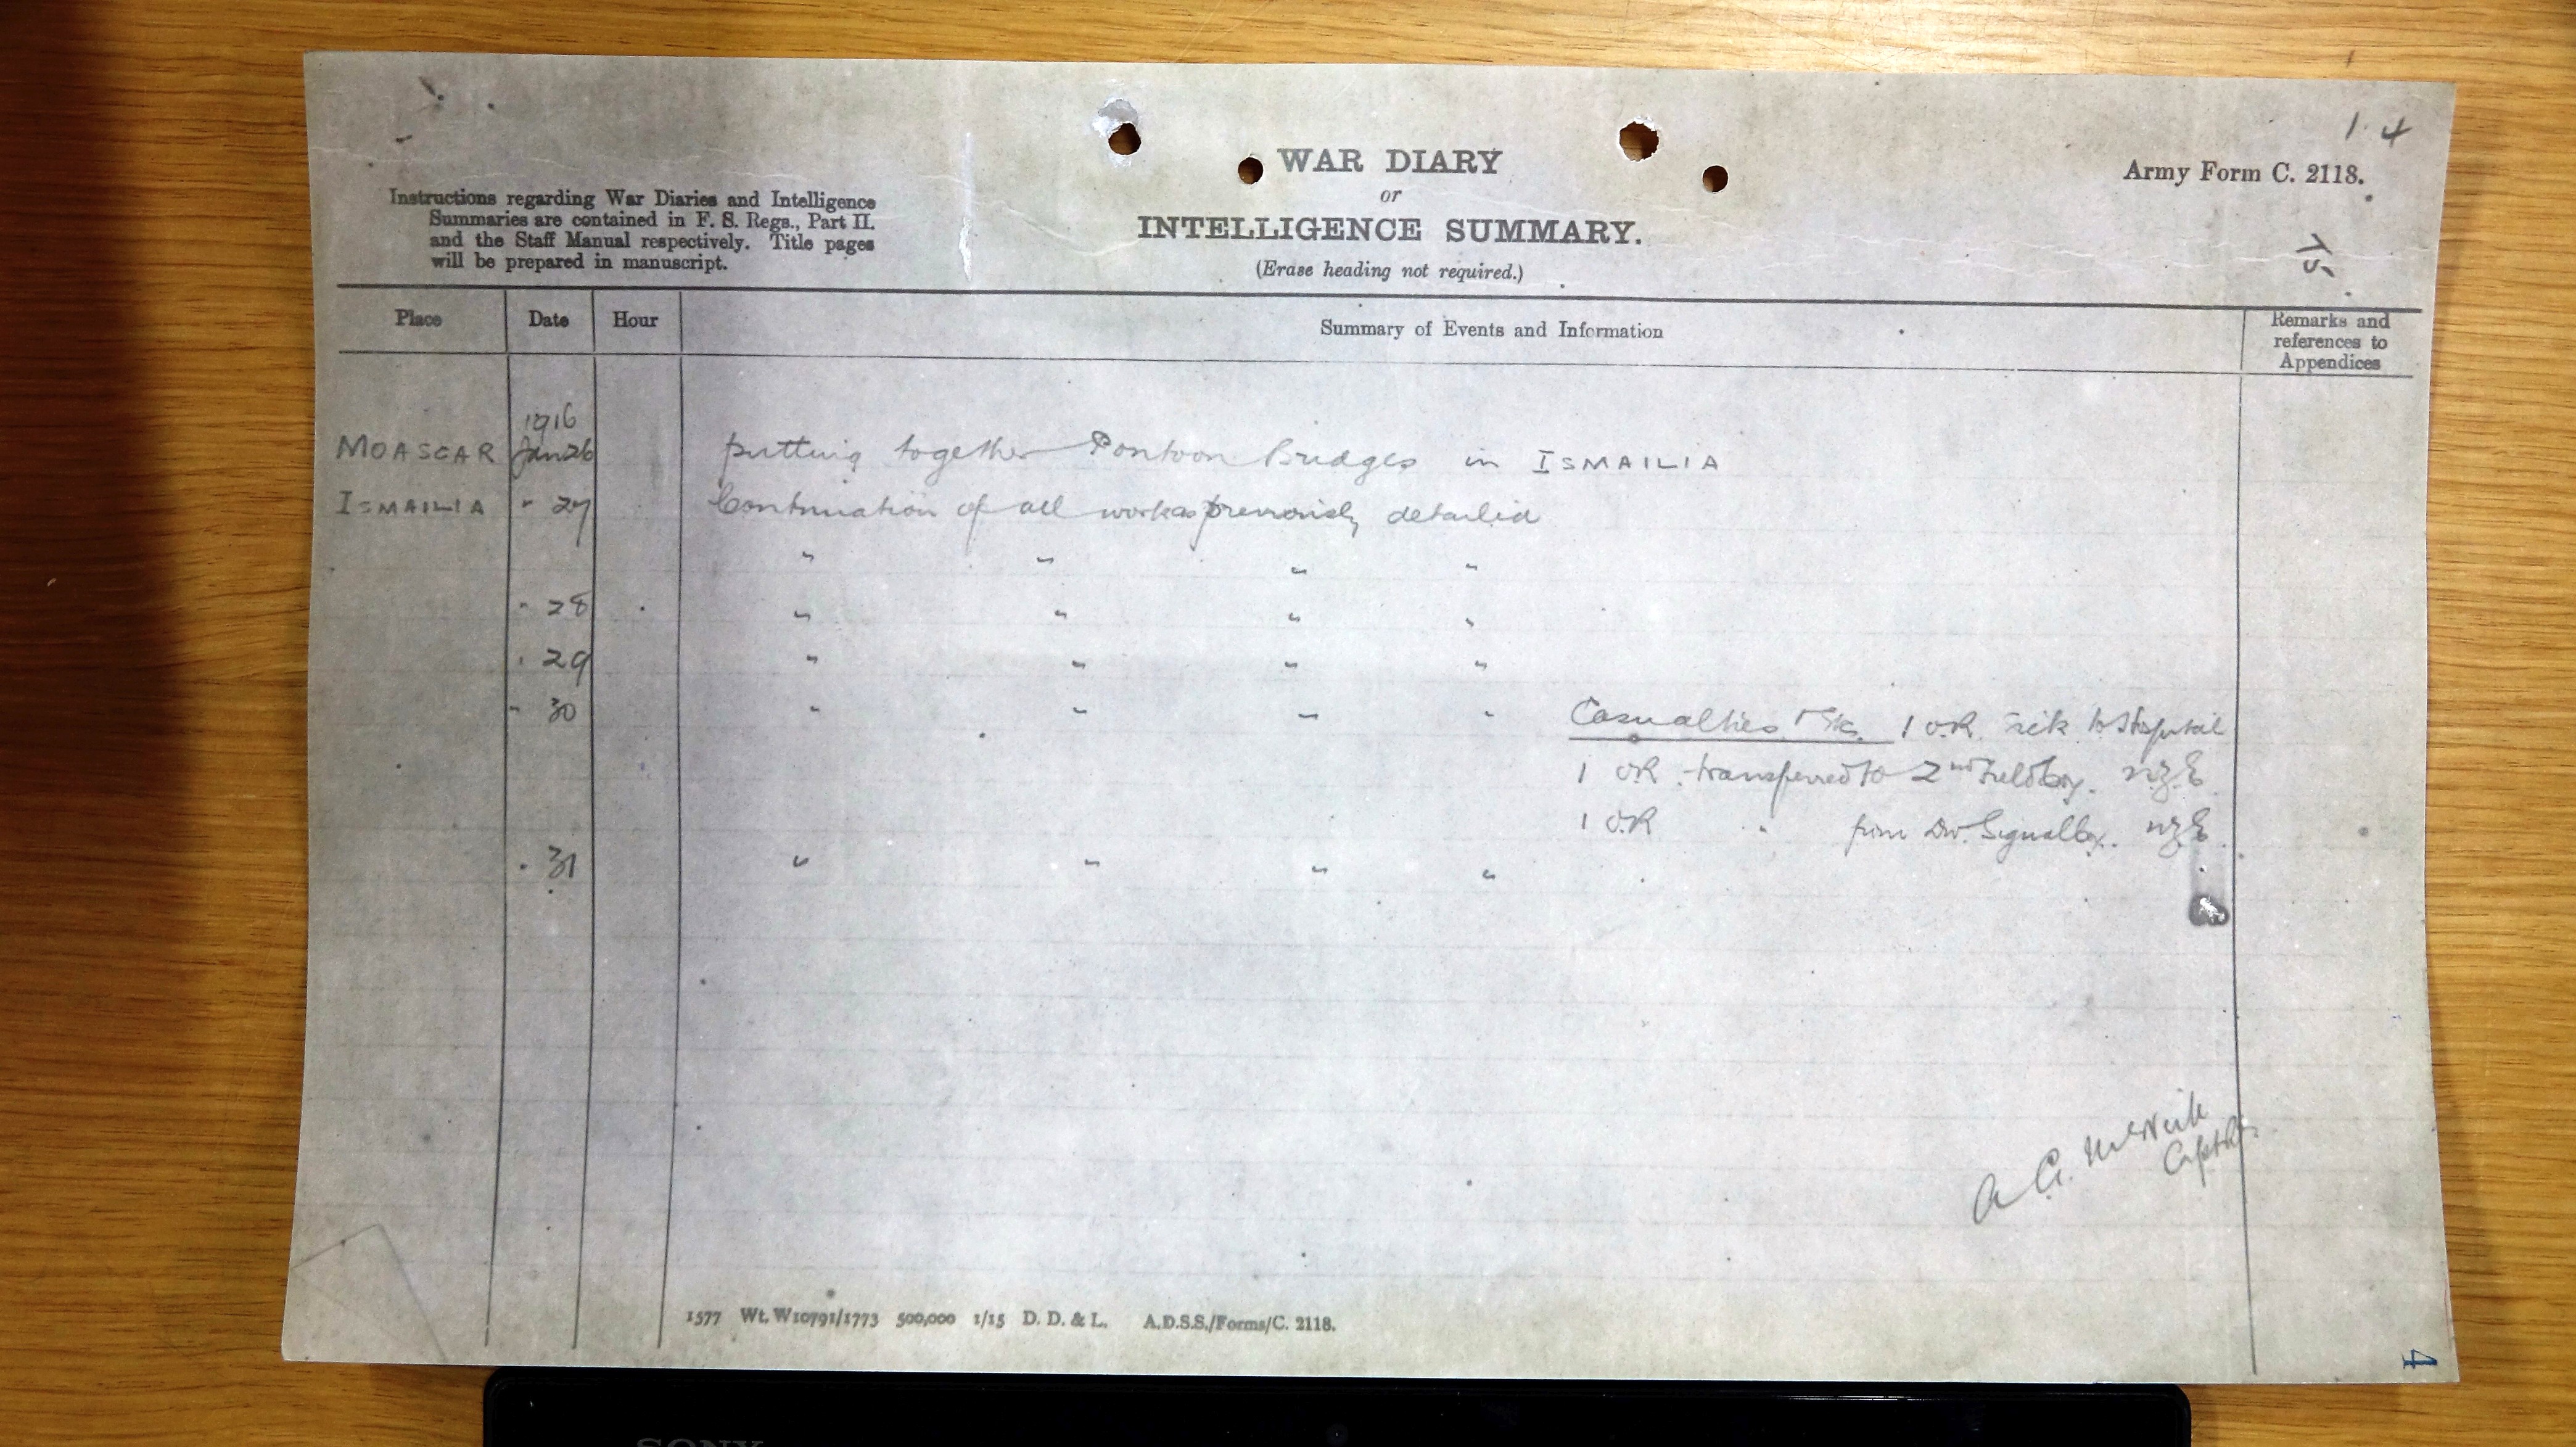 1. 4
Army Form C. 2118.
WAR DIARY
or
INTELLIGENCE SUMMARY.
(Erase heading not required.)
Instructions regarding War Diaries and Intelligence
Summaries are contained in F. S. Regs., Part II.
and the Staff Manual respectively. Title pages
will be prepared in manuscript.
Place Date Hour Summary of Events and Information Remarks and
references to
Appendices
1916
MOASCAR Jan 26 putting together Pontoon Bridges in ISMAILIA
ISMAILIA " 27 Continuation of all work as previously detailed
" " " "
" 28 " " " "
" 29 " " " "
" 30 " " " " Casualties 1 O.R. sick to Hospital
1 O.R. transferred to 2nd Field Coy. N.Z.E.
1 O.R. " from Div. Signal Coy. N.Z.E.
" 31 " " " "
A. G. McNeill
Capt
1577 Wt. W10791/1773 500,000 1/15 D. D. & L. A.D.S.S./Forms/C. 2118.
4
SONY